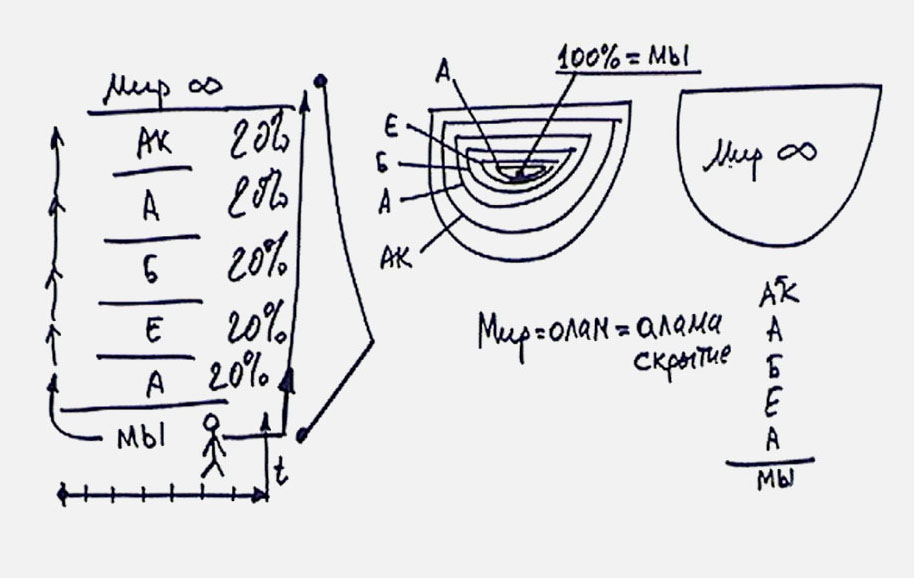 Мир ∞
АК 20%
А 20%
Б 20%
Е 20%
А 20%
МЫ
t
100% = МЫ
А
Е
Б
А
АК
Мир ∞
Мир = олам = алама
скрытие
АК
А
Б
Е
А
МЫ